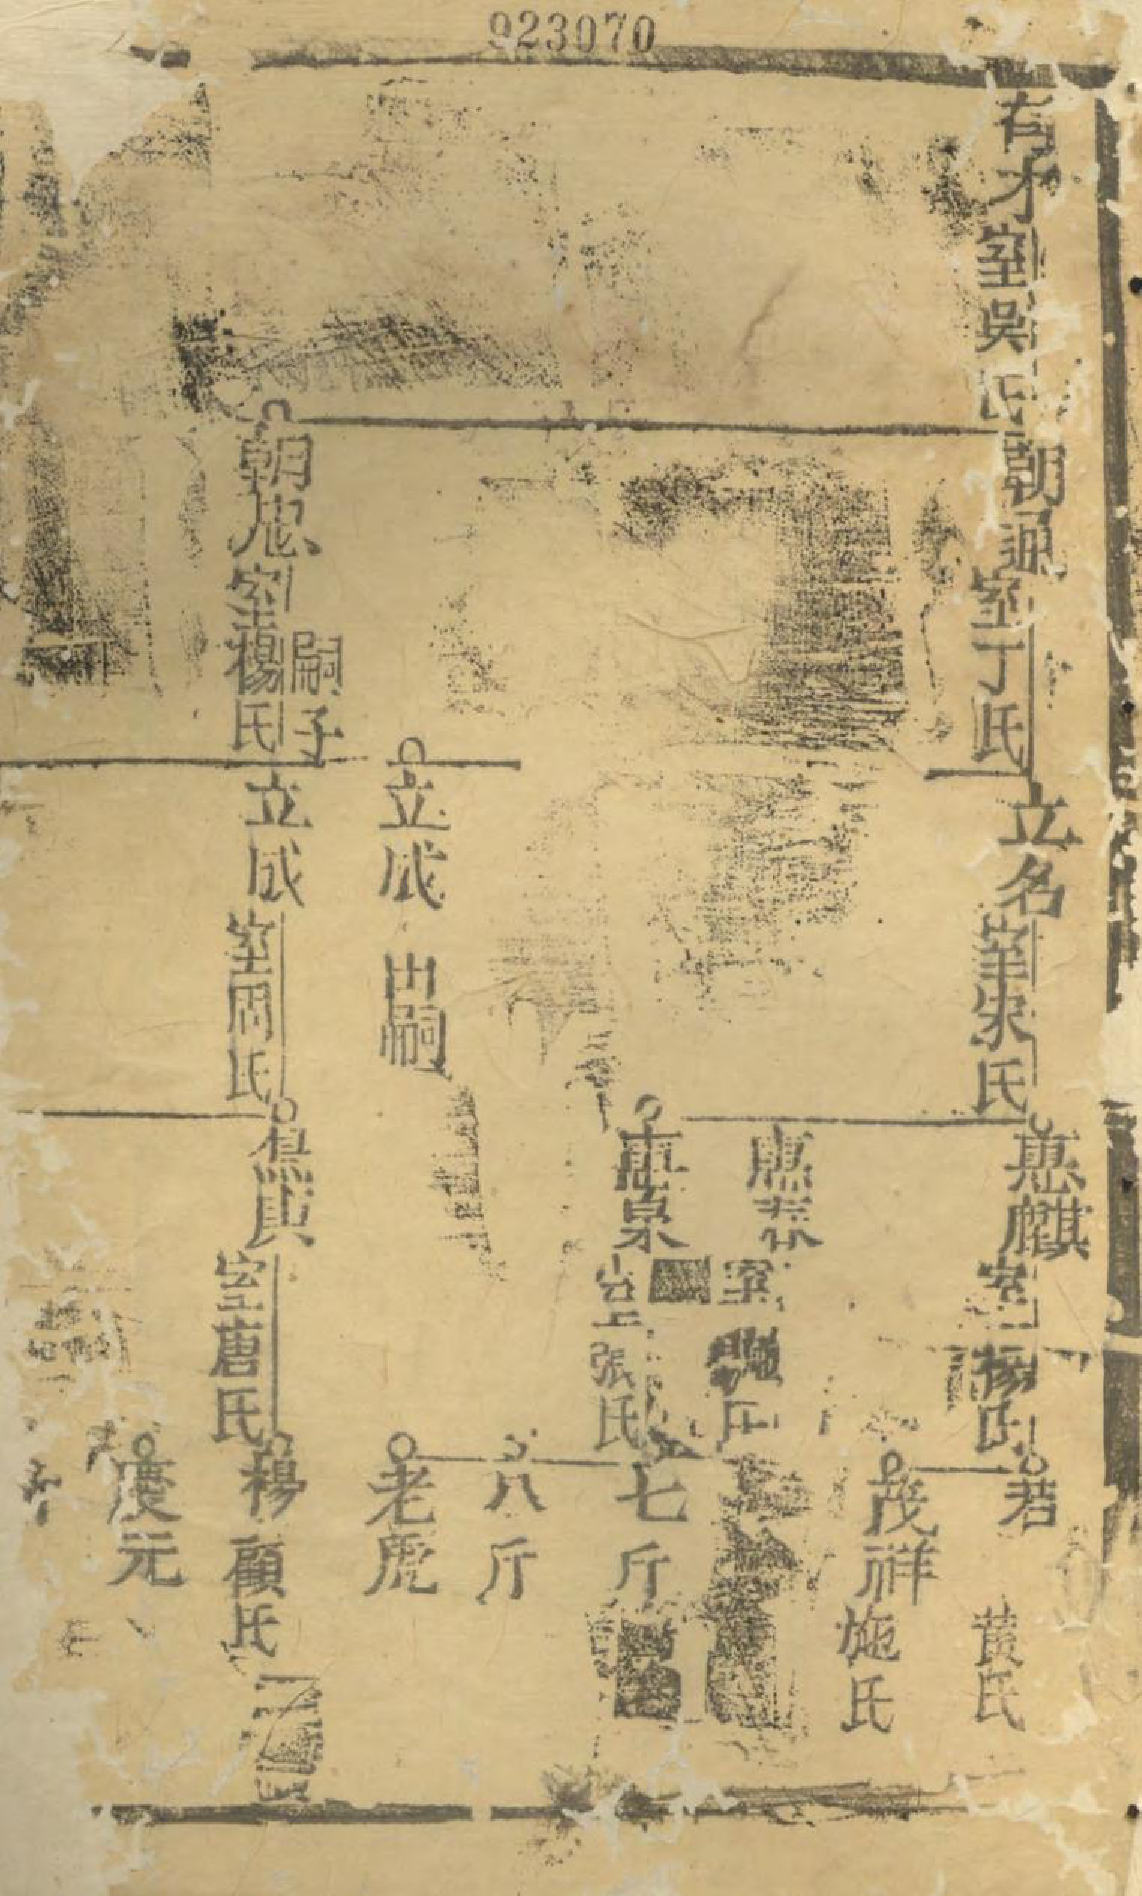 923070
有才
室吳氏
朝通
室丁氏
立名
室宋氏
惠麒
室楊氏
若
黄氏
茂祥
施氏
惠春
室
氏
惠泉
室張氏
七斤
八斤
老虎
立成
出嗣
朝忠
室楊氏
嗣子
立成
室周氏
室唐氏
楊
顧氏
慶元